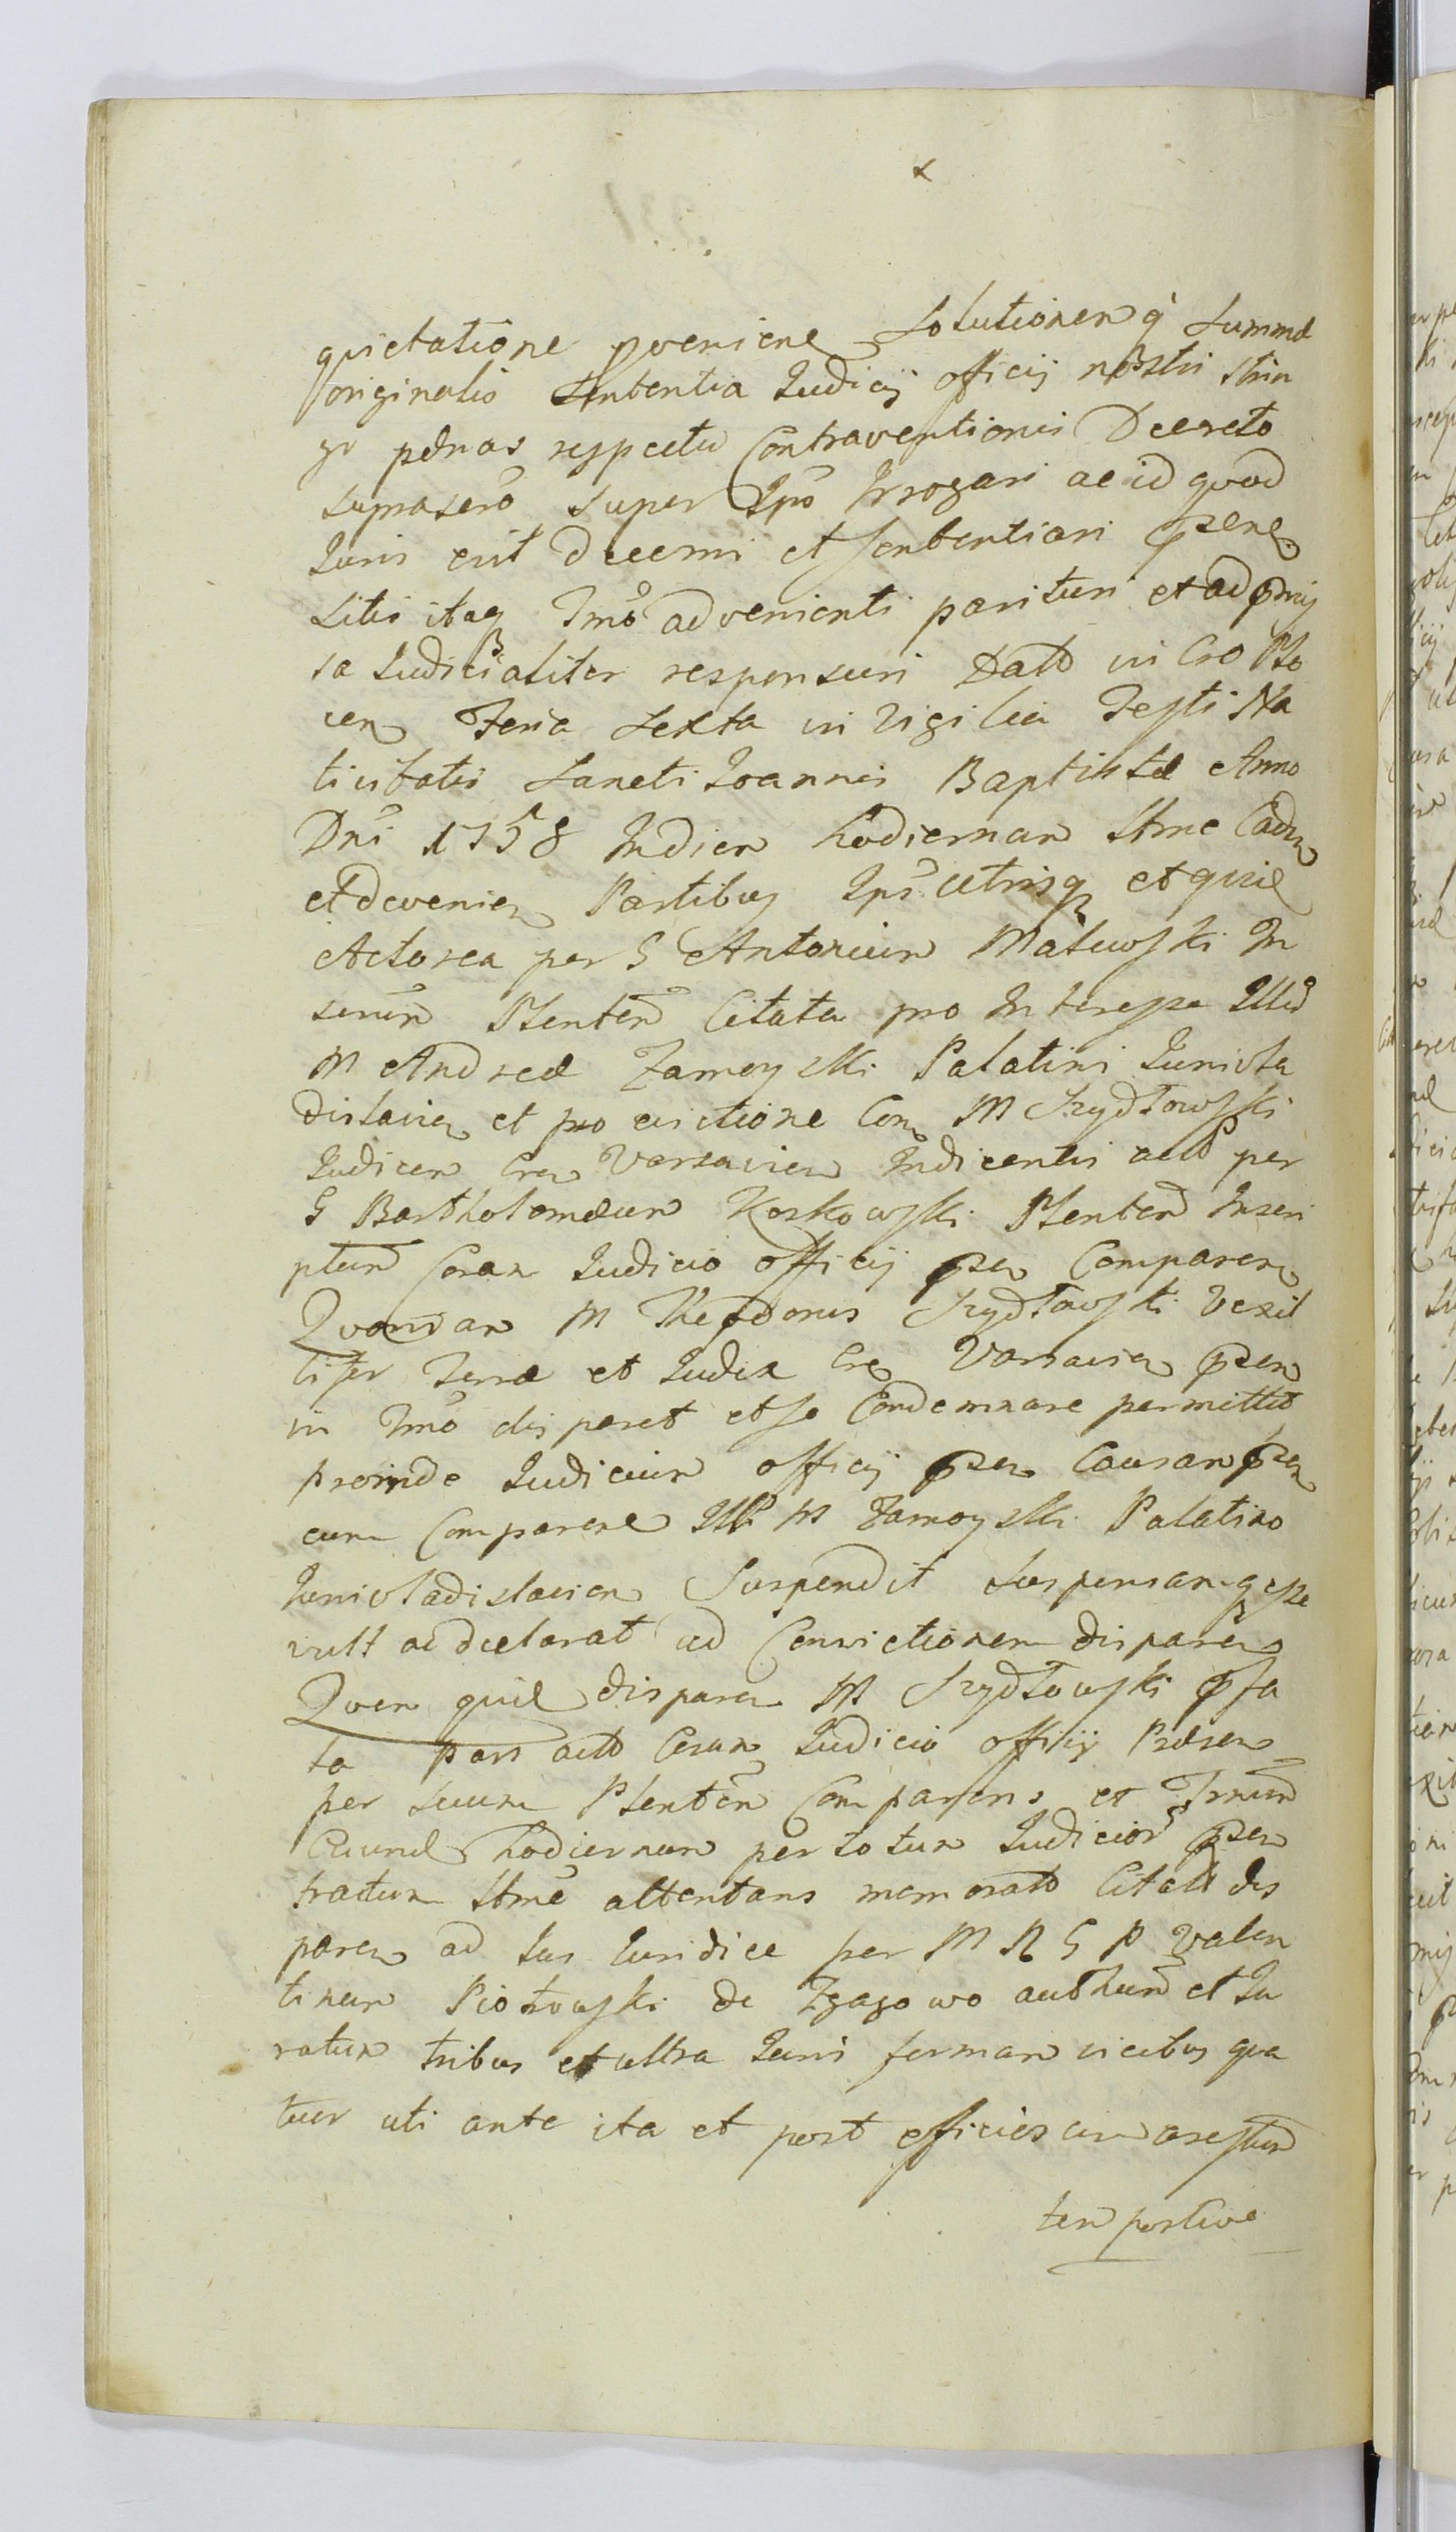 quietatione proveniend Solutionem q̀ Summæ
originalis Sententia Judicij officij nostri strin
gi pænas respectu Contraventionis Decreto
supraserō super Ipō Irrogari ac id quod
Juris erit decerni et sententiari Pręsenę
Sitis itaq Tmō advenienti parituri et ad pmis
sa Judicialiter responsuri Datt in Cro Plo
cen Feria Sexta in Vigilia Festi Na
tivitatis Sancti Joannis Baptistæ Anno
Dnī 1758 In diem hodiernam Itme Caden
et devenien Partibus Ipś utrisq et quid
Actorea per G Antonium Małowski In
serun Plenten Citata pro Interesse Illu
M Andreæ Zamoyski Palatini Junivla
dislavien et pro evictione Con M Szydłowski
Judicem Cren Varsavien Indicentis actt per
G Bartholomæum Koskowski Plenten Inscri
ptum Coram Judicio officij psen Comparen
Quondam M Theodorus Szydłowski Vexil
lifer Terræ et Judex Cre Varsavien psen
in Tmō disparet et se Condemnare permittit
proinde Judicium officij psen Causam psen
cum Comparend Ill M Zamoyski Palatino
Junivladislavien Suspendit Suspensamq esse
vult ac declarat ad Convictionem disparen
Quem quid disparen M Szydłowski pfa
ta Pars actt Coram Judicio officij Præsen
per suum Plenten Comparens et Tmnum
Eund hodiernum per totum Judicior psen
tractum Itmē attentans memoratt Citatt dis
paren ad Jus Juridice per M R G P Valen
tinum Piotrowski de Zgagowo authen et Ju
ratum tribus et ultra Juris formam vicibus qua
tuor uti ante ita et post officiosum arestum
tempestive